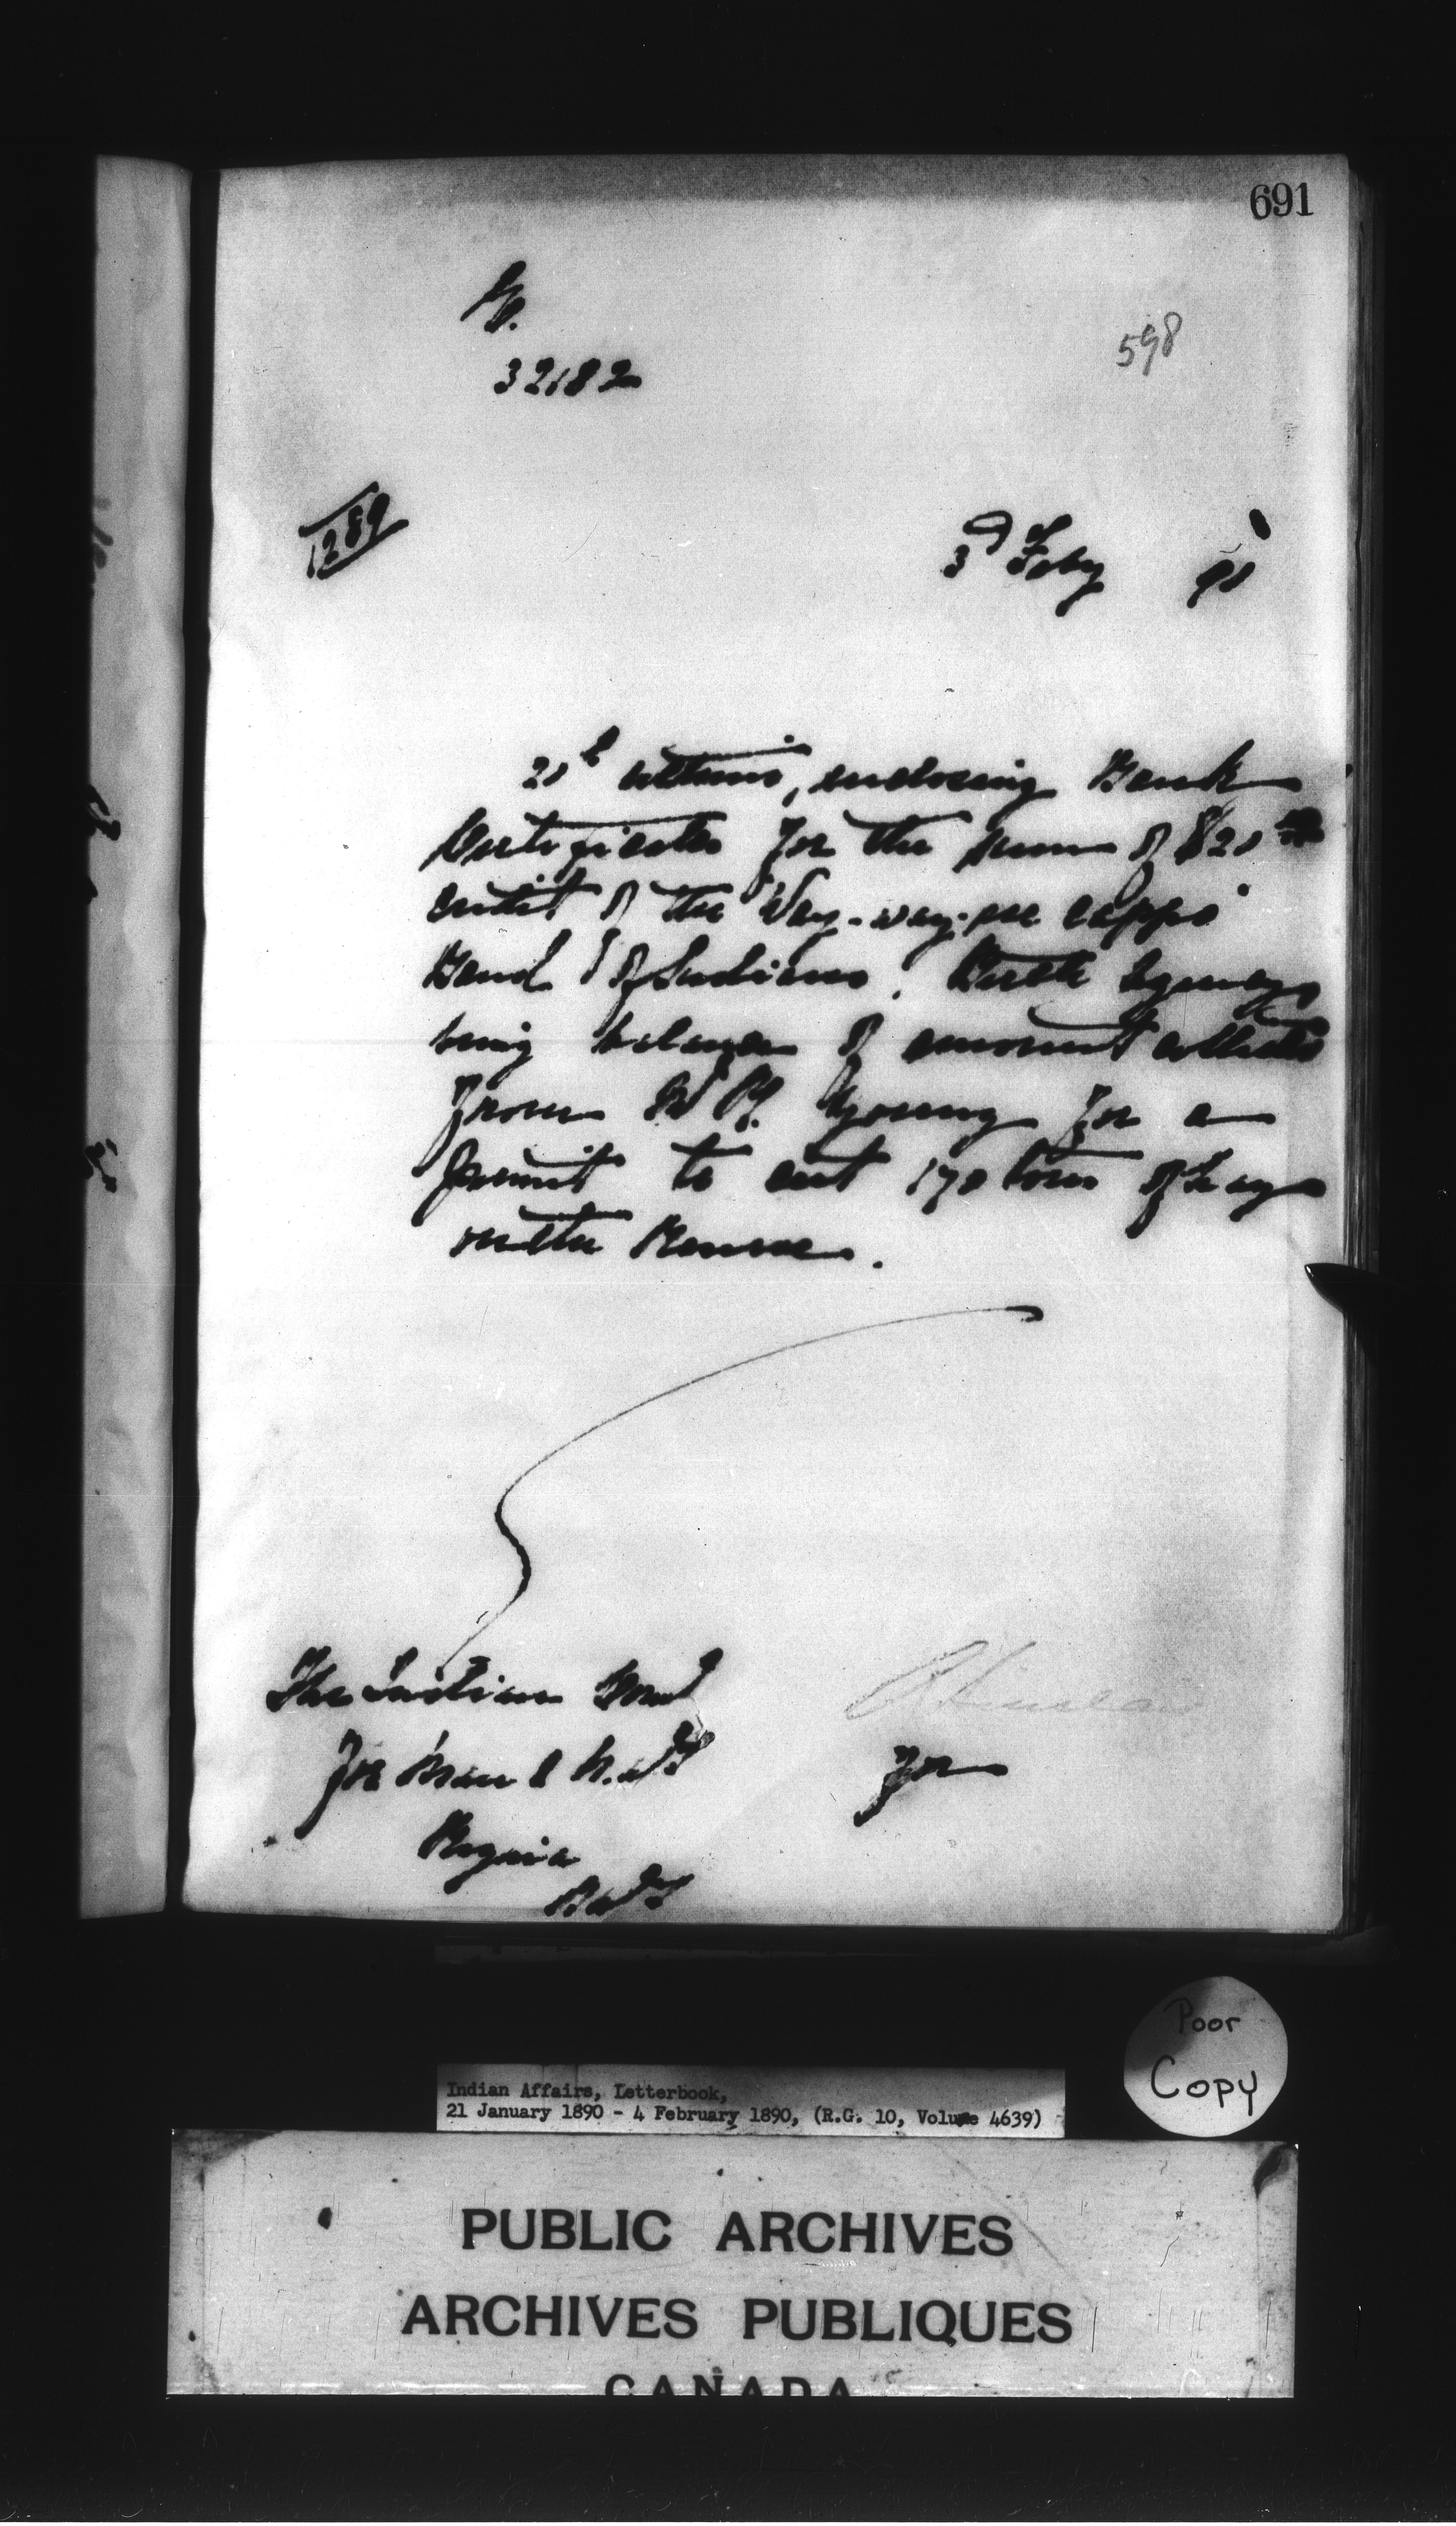 691
598
32182
1289
3rd Feby 90
ultimo, enclosing Bank
Certificate for the sum of $20
credit of the Way-way-see cappo
Band of Indians, Birtle Agency
being balance of amount collected
from W H. Young for a
permit to cut 170 tons of hay
on the Reserve.
The Indian Comr
for Man & N.W.T
Regina
N.W.T
for
Poor
Copy
Indian Affairs, Letterbook,
21 January 1890 - 4 February 1890, (R.G. 10, Volume 4639)
PUBLIC ARCHIVES
ARCHIVES PUBLIQUES
CANADA